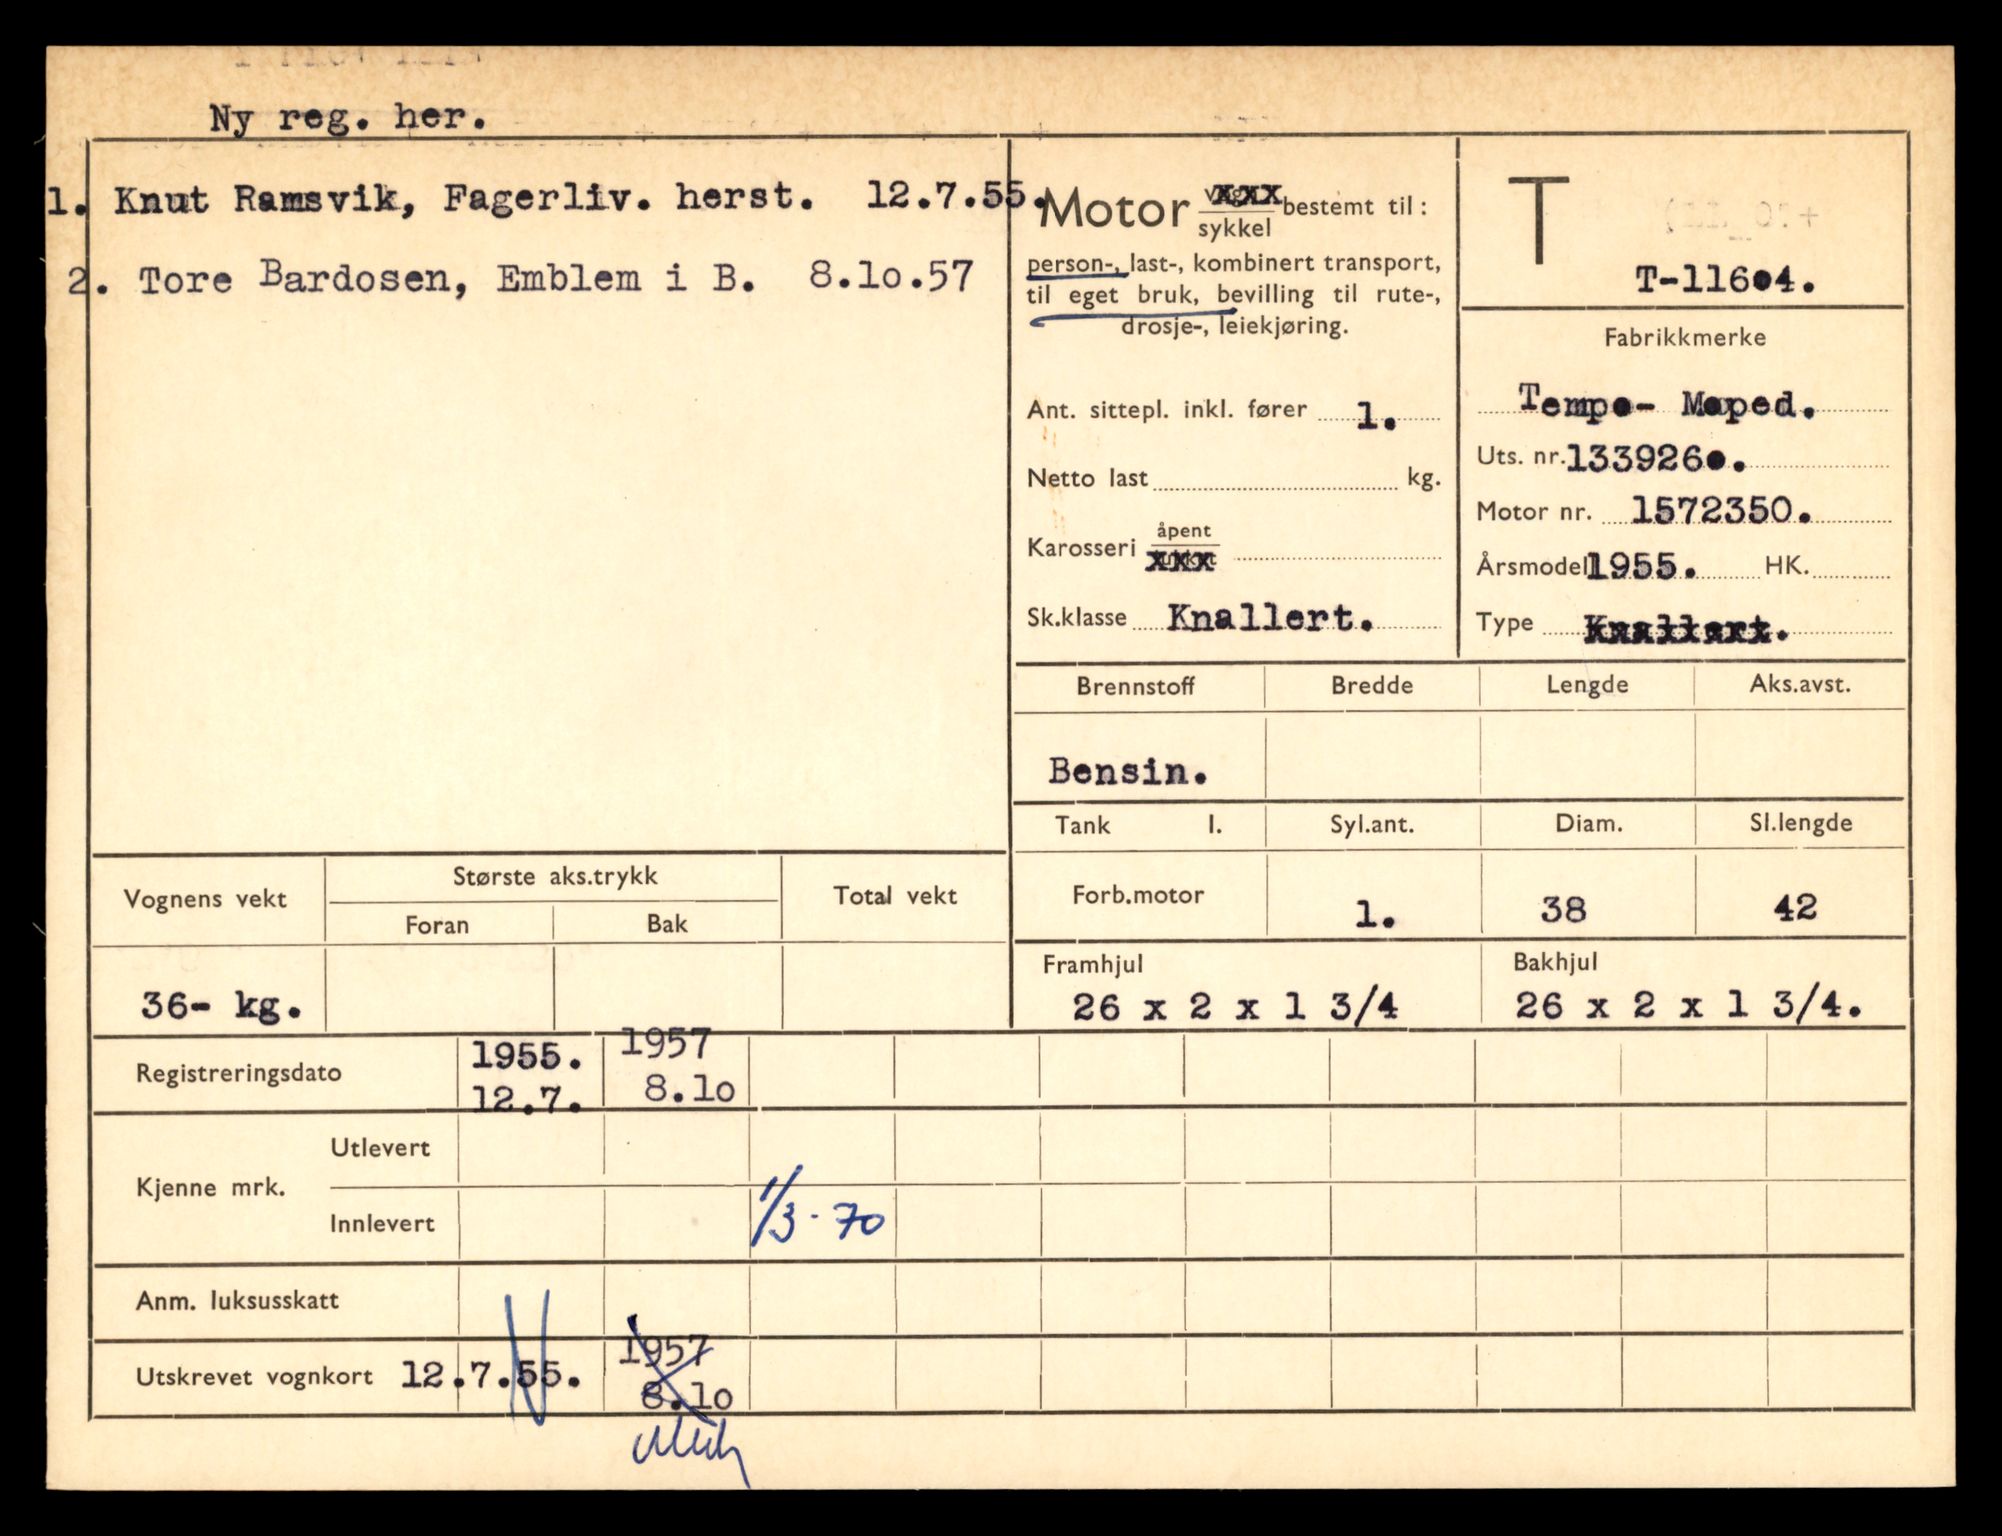 Ny reg. her.
1. Knut Ramsvik, Fagerliv. herst. 12.7.55.
2. Tore Bardosen, Emblem i B. 8.10.57
Motor sykkel bestemt til:
person-, last-, kombinert transport,
til eget bruk, bevilling til rute-,
drosje-, leiekjøring.
Ant. sittepl. inkl. fører 1.
Netto last kg.
Karosseri åpent
Sk.klasse Knallert.
T
T-11604.
Fabrikkmerke
Tempo- Moped.
Uts. nr. 1339260.
Motor nr. 1572350.
Årsmodell 1955. HK.
Type Knallert.
Brennstoff Bredde Lengde Aks.avst.
Bensin.
Tank l. Syl.ant. Diam. Sl.lengde
Forb.motor 1. 38 42
Framhjul Bakhjul
26 x 2 x 1 3/4 26 x 2 x 1 3/4.
Vognens vekt Største aks.trykk Total vekt
Foran Bak
36- kg.
Registreringsdato 1955. 1957
12.7. 8.10
Kjenne mrk. Utlevert
Innlevert 1/3-70
Anm. luksusskatt
Utskrevet vognkort 12.7.55. 1957
8.10